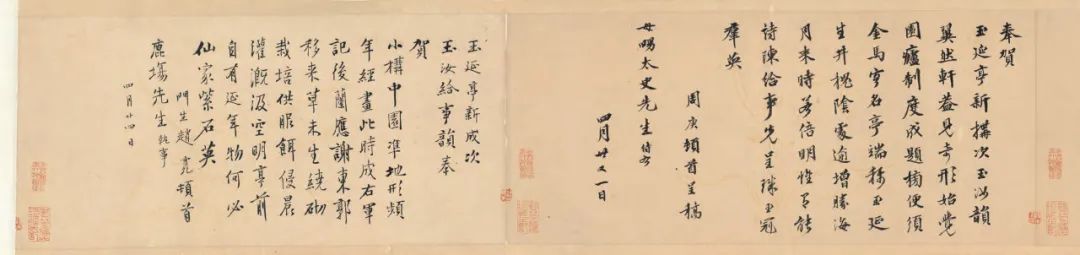 奉賀
玉延亭新構次玉汝韻
翼然軒蓋見奇形始覺
園廬制度成題榜便須
金馬客名亭端稱玉延
生井槐陰處逾增勝海
月來時若倍明惟有能
詩陳給事先呈珠玉冠
羣英
周庚頓首呈稿
母嗚太史先生侍右
四月廿又一日
玉延亭新成次
玉汝給事韻奉
賀
小構中園準地形頻
年經畫此時成右軍
記後蘭應謝東郭
移來草未生繞砌
栽培供服餌侵晨
灌溉汲空明亭前
自有延年物何必
仙家紫石英
門生趙寬頓首
鹿場先生執事
四月廿四日